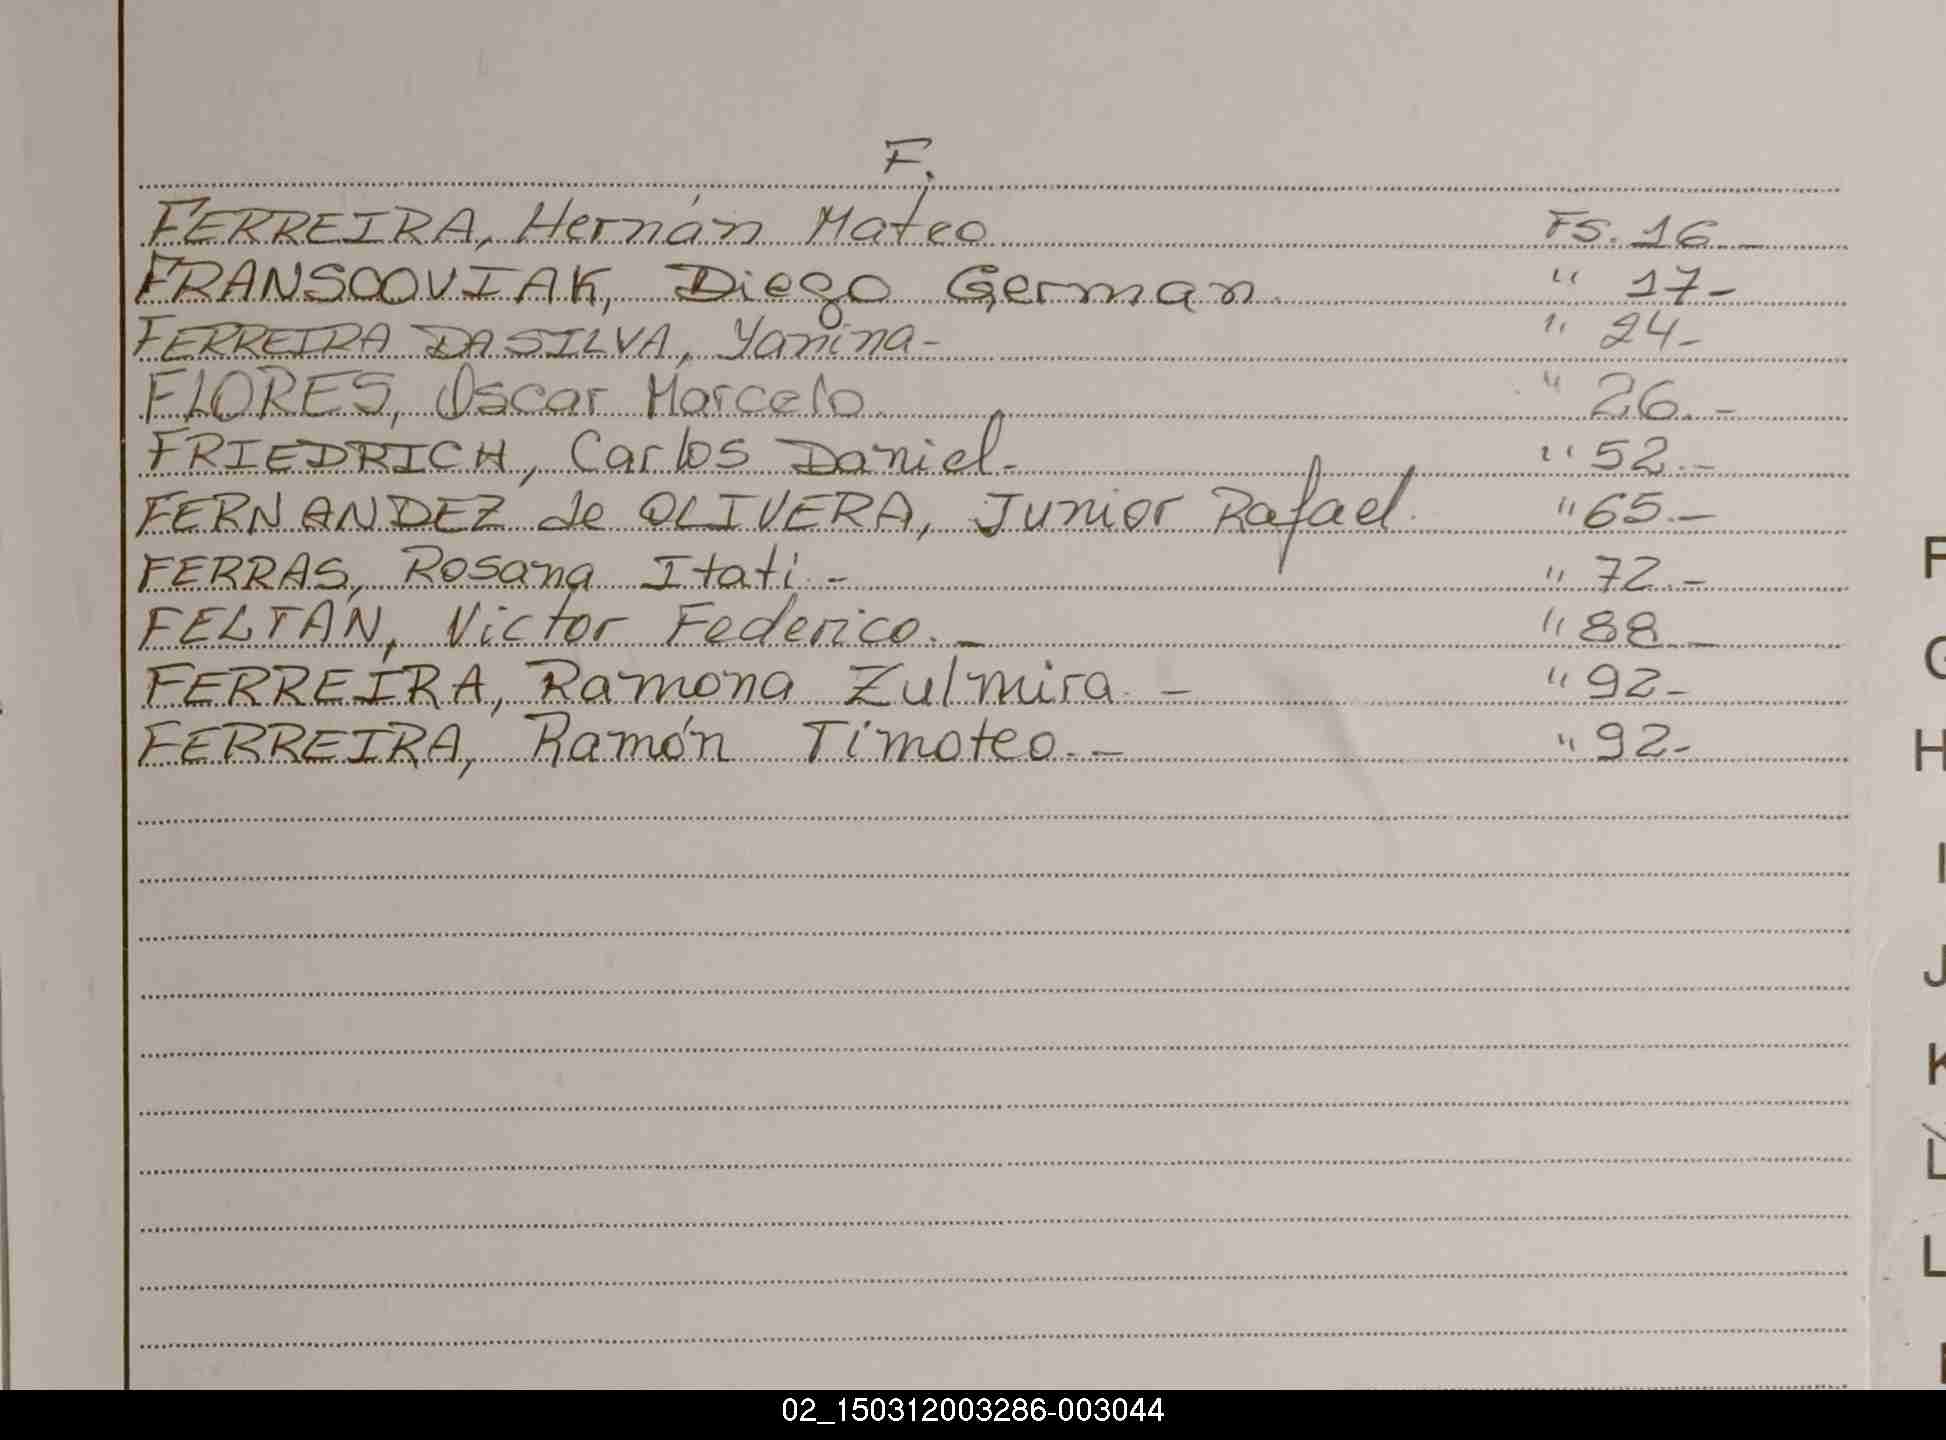 F.
FERREIRA, Hernán Mateo Fs. 16_
FRANSCOVIAK, Diego German. " 17-
FERREIRA DA SILVA, Yanina- " 24-
FLORES, Oscar Marcelo. " 26.-
FRIEDRICH, Carlos Daniel.- " 52.-
FERNANDEZ de OLIVERA, Junior Rafael. " 65.-
FERRAS, Rosana Itati.- " 72.-
FELTAN, Victor Federico._ " 88._
FERREIRA, Ramona Zulmira.- " 92-
FERREIRA, Ramón Timoteo.- " 92-
F
G
H
I
J
K
L
L
02_150312003286-003044